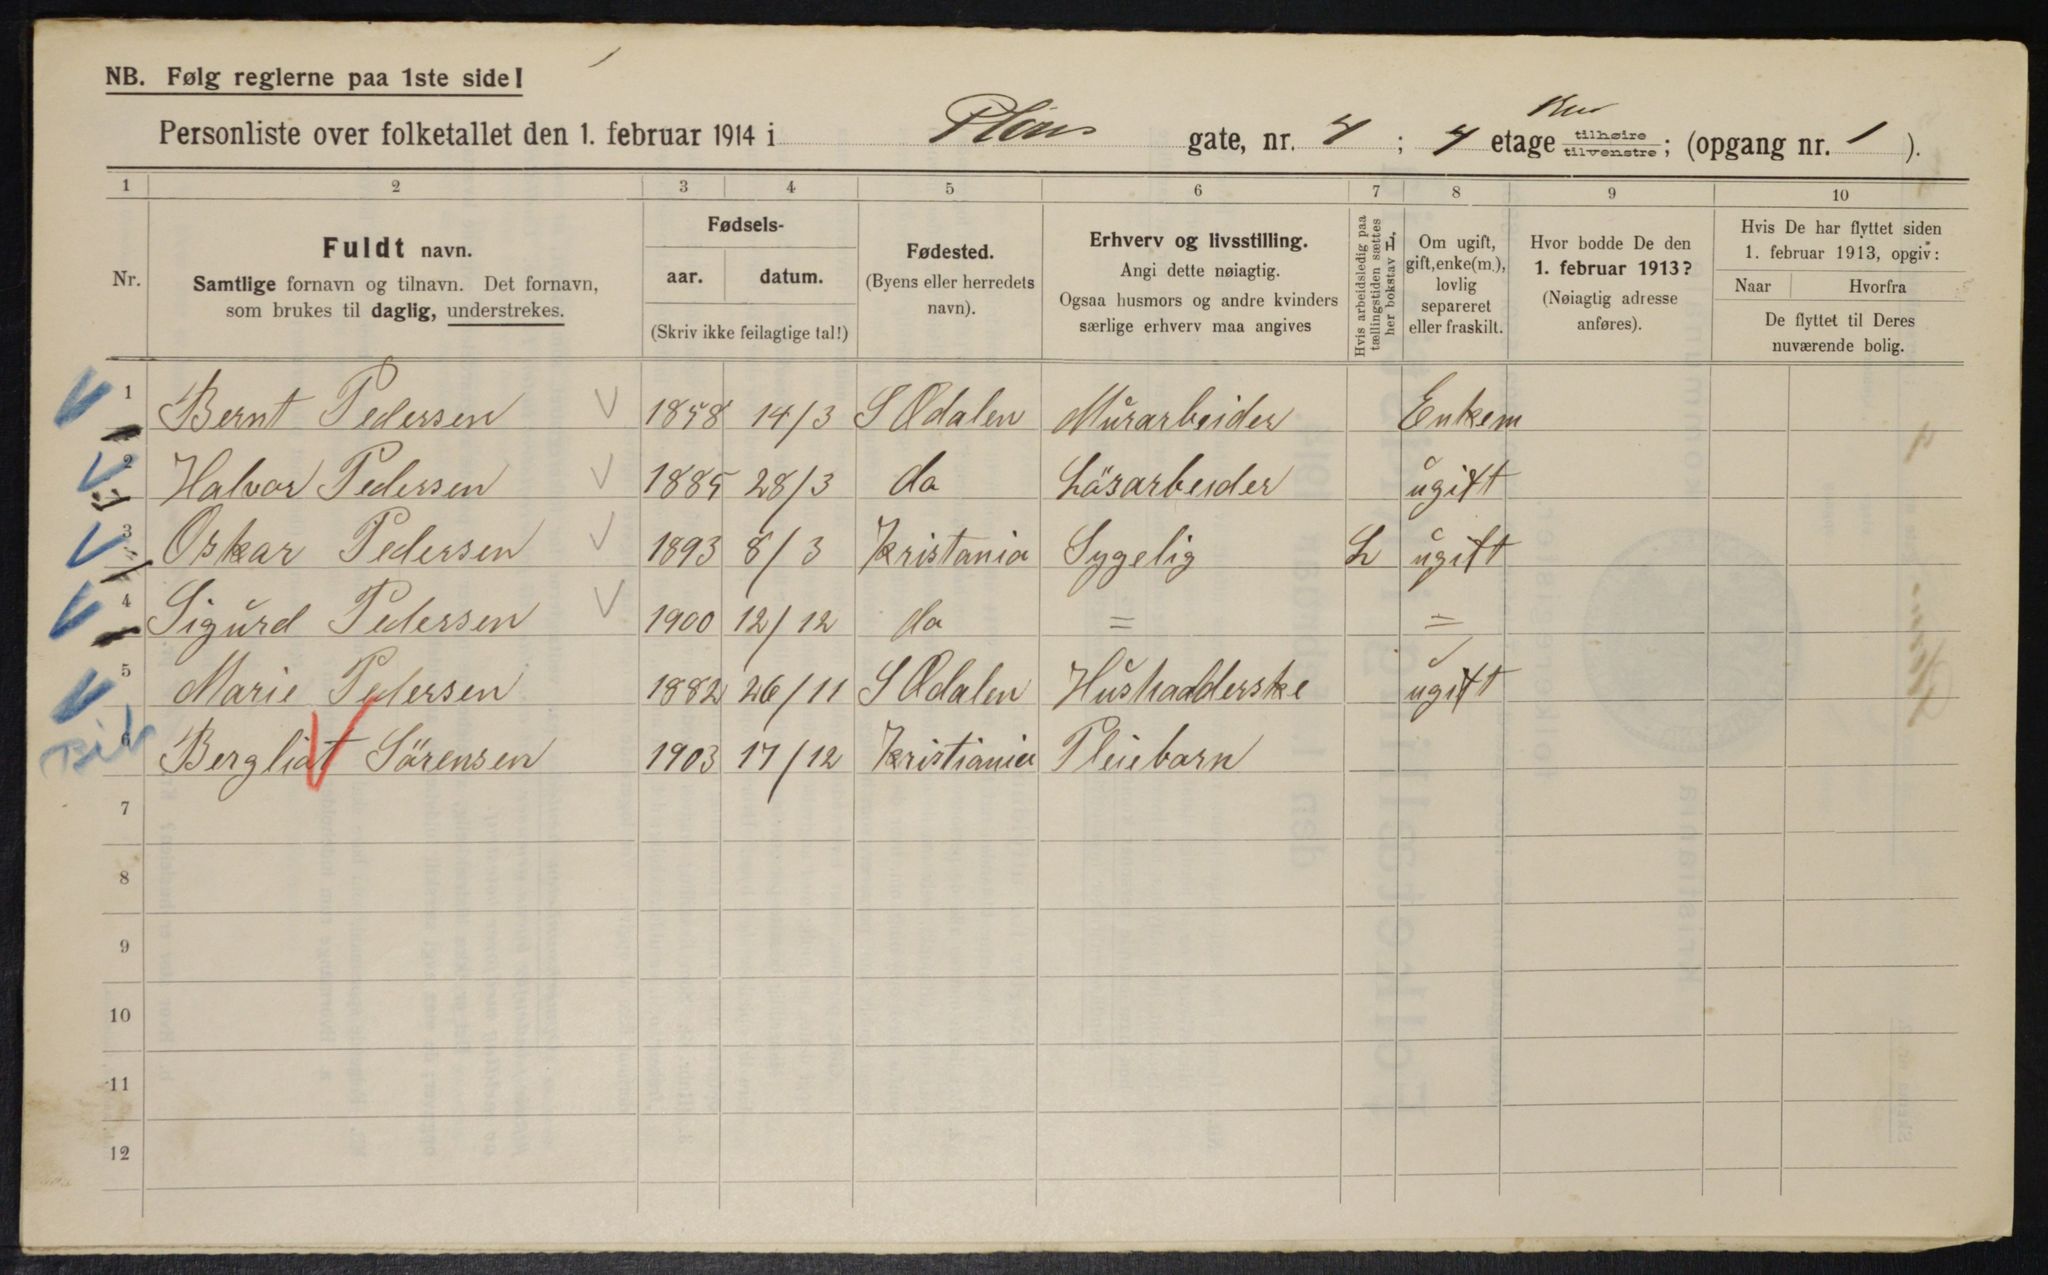 NB. Følg reglerne paa 1ste side!
Personliste over folketallet den 1. februar 1914 i Pløens gate, nr. 4 ; 4 etage tilhøire tilvenstre; (opgang nr. 1 ).
1 2 3 4 5 6 7 8 9 10
Nr.
Fuldt navn.
Samtlige fornavn og tilnavn. Det fornavn,
som brukes til daglig, understrekes.
Fødsels-
aar. datum.
(Skriv ikke feilagtige tal!)
Fødested.
(Byens eller herredets
navn).
Erhverv og livsstilling.
Angi dette nøiagtig.
Ogsaa husmors og andre kvinders
særlige erhverv maa angives
Hvis arbeidsledig paa
tællingstiden sættes
her bokstav L.
Om ugift,
gift, enke(m.),
lovlig
separeret
eller fraskilt.
Hvor bodde De den
1. februar 1913?
(Nøiagtig adresse
anføres).
Hvis De har flyttet siden
1. februar 1913, opgiv:
Naar Hvorfra
De flyttet til Deres
nuværende bolig.
1 Bernt Pedersen 1858 14/3 S Odalen Murarbeider Enkem
2 Halvor Pedersen 1885 28/3 do Lösarbeider ugift
3 Oskar Pedersen 1893 8/3 Kristania Sygelig L ugift
4 Sigurd Pedersen 1900 12/12 do = =
5 Marie Pedersen 1882 26/11 S Odalen Hushadderske ugift
6 Bergliot Sörensen 1903 17/12 Kristiania Pleiebarn
7
8
9
10
11
12